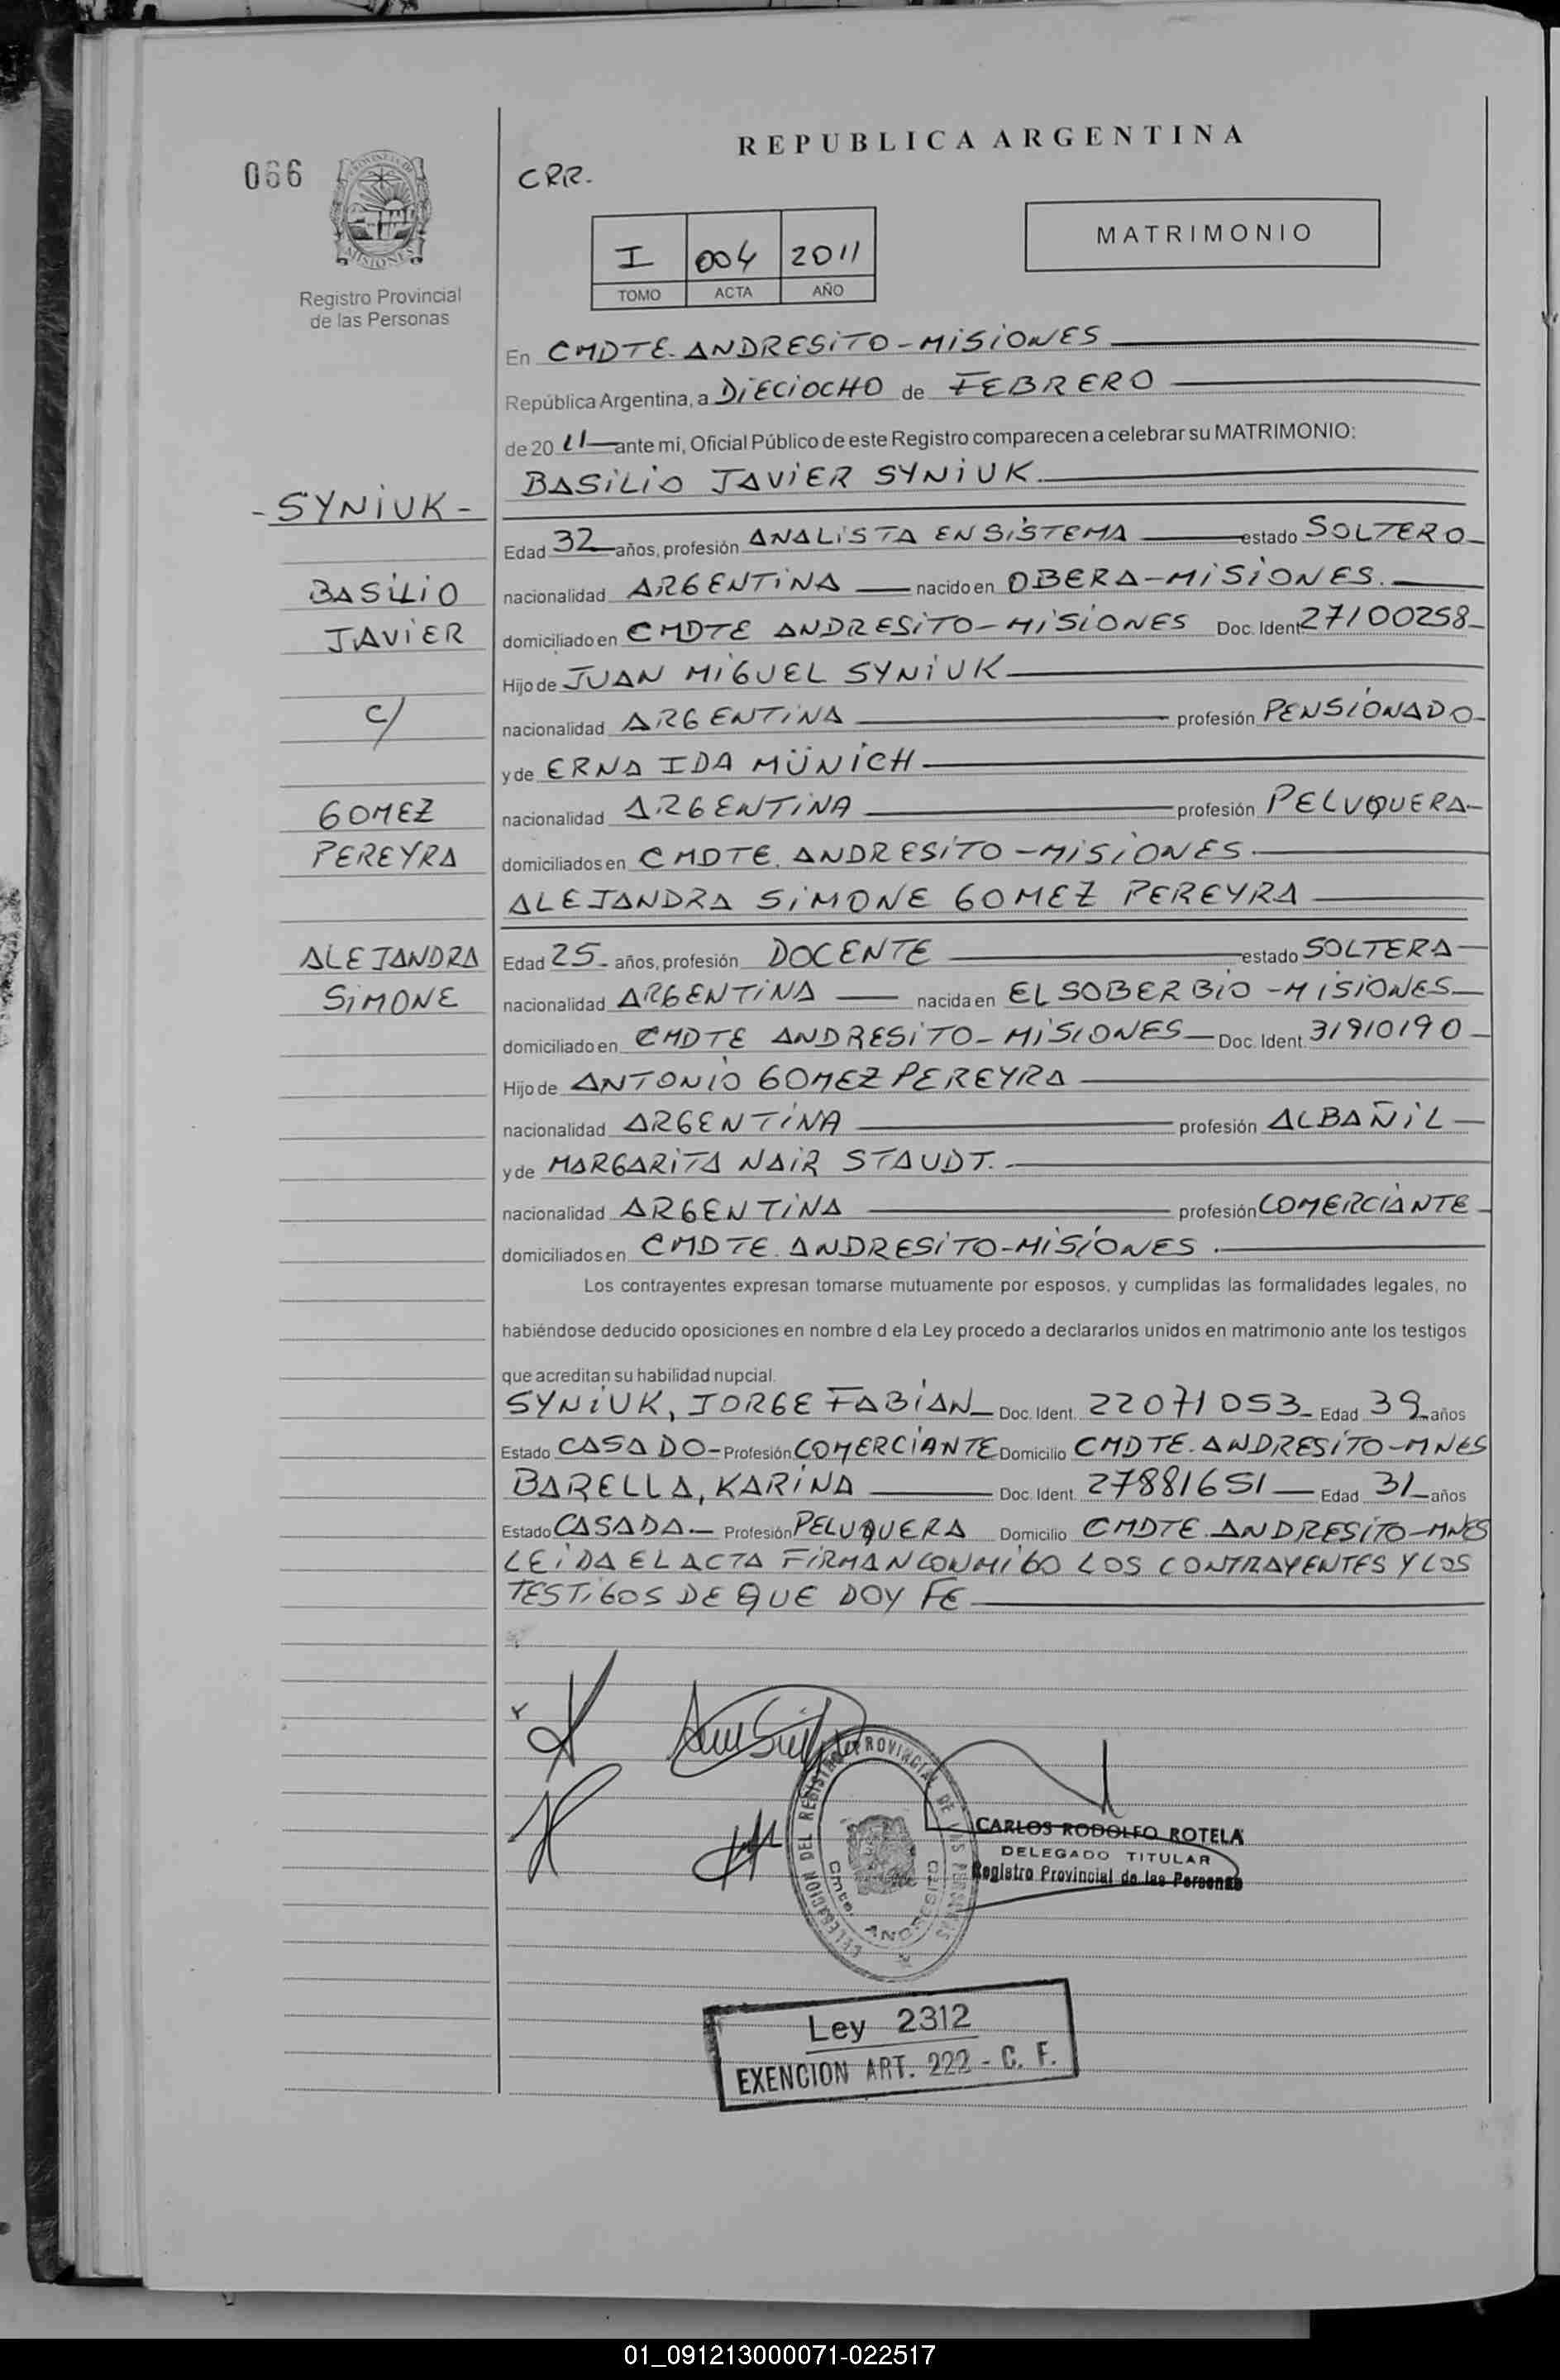 066
PROVINCIA DE
MISIONES
Registro Provincial
de las Personas
REPUBLICA ARGENTINA
CRR.
I 004 2011
TOMO ACTA AÑO
MATRIMONIO
En CMDTE. ANDRESITO - MISIONES
República Argentina, a DIECIOCHO de FEBRERO
de 20 11 ante mi, Oficial Público de este Registro comparecen a celebrar su MATRIMONIO:
BASILIO JAVIER SYNIUK
- SYNIUK -
Edad 32 años, profesión ANALISTA EN SISTEMA estado SOLTERO
BASILIO
nacionalidad ARGENTINA nacido en OBERA - MISIONES.
JAVIER
domiciliado en CMDTE ANDRESITO - MISIONES Doc. Ident. 27100258
Hijo de JUAN MIGUEL SYNIUK
C/
nacionalidad ARGENTINA profesión PENSIONADO
y de ERNA IDA MÜNICH
GOMEZ
nacionalidad ARGENTINA profesión PELUQUERA
PEREYRA
domiciliados en CMDTE. ANDRESITO - MISIONES
ALEJANDRA SIMONE GOMEZ PEREYRA
ALEJANDRA
Edad 25 años, profesión DOCENTE estado SOLTERA
SIMONE
nacionalidad ARGENTINA nacida en EL SOBERBIO - MISIONES
domiciliado en CMDTE ANDRESITO - MISIONES Doc. Ident. 31910190
Hijo de ANTONIO GOMEZ PEREYRA
nacionalidad ARGENTINA profesión ALBAÑIL
y de MARGARITA NAIR STAUDT.
nacionalidad ARGENTINA profesión COMERCIANTE
domiciliados en CMDTE. ANDRESITO - MISIONES.
Los contrayentes expresan tomarse mutuamente por esposos, y cumplidas las formalidades legales, no
habiéndose deducido oposiciones en nombre d ela Ley procedo a declararlos unidos en matrimonio ante los testigos
que acreditan su habilidad nupcial.
SYNIUK, JORGE FABIAN Doc. Ident. 22071053 Edad 39 años
Estado CASADO - Profesión COMERCIANTE Domicilio CMDTE. ANDRESITO - MNES
BARELLA, KARINA Doc. Ident. 27881651 Edad 31 años
Estado CASADA Profesión PELUQUERA Domicilio CMDTE. ANDRESITO - MNES
LEIDA EL ACTA FIRMAN CONMIGO LOS CONTRAYENTES Y LOS
TESTIGOS DE QUE DOY FE
DELEGACION DEL REGISTRO PROVINCIAL DE LAS PERSONAS
Cmte. ANDRESITO
CARLOS RODOLFO ROTELA
DELEGADO TITULAR
Registro Provincial de las Personas
Ley 2312
EXENCION ART. 222 - C. F.
01_091213000071-022517